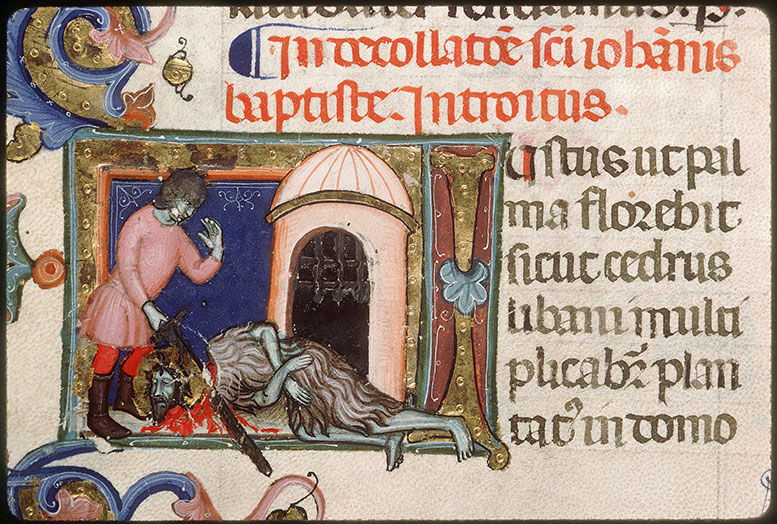 In decollatōe sc̄i ioh̄anis
baptiste. Introitus.
Iustus ut pal
ma florebit
sicut cedrus
libani multi
plicab̄r plan
tatꝰ in domo